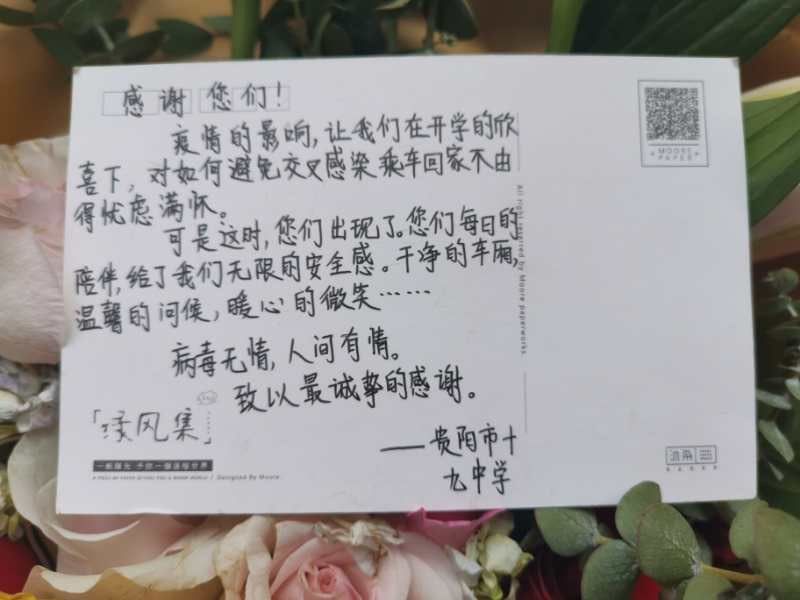 感谢您们！
疫情的影响，让我们在开学的欣
喜下，对如何避免交叉感染乘车回家不由
得忧虑满怀。
可是这时，您们出现了。您们每日的
陪伴，给了我们无限的安全感。干净的车厢，
温馨的问候，暖心的微笑……
病毒无情，人间有情。
致以最诚挚的感谢。
——贵阳市十
九中学
风集」
Designed By Moore.
MOORE
PAPER
All right reserved by Moore paperworks.